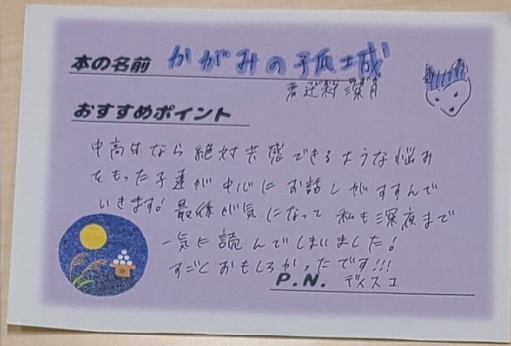 本の名前 かがみの孤城
著 辻村深月
おすすめポイント
中高生なら絶対共感できるような悩み
をもった子達が中心にお話しがすすんで
いきます! 最後が気になって 私も深夜まで
一気に読んでしまいました!
すごくおもしろかったです!!!
P.N. ディスコ